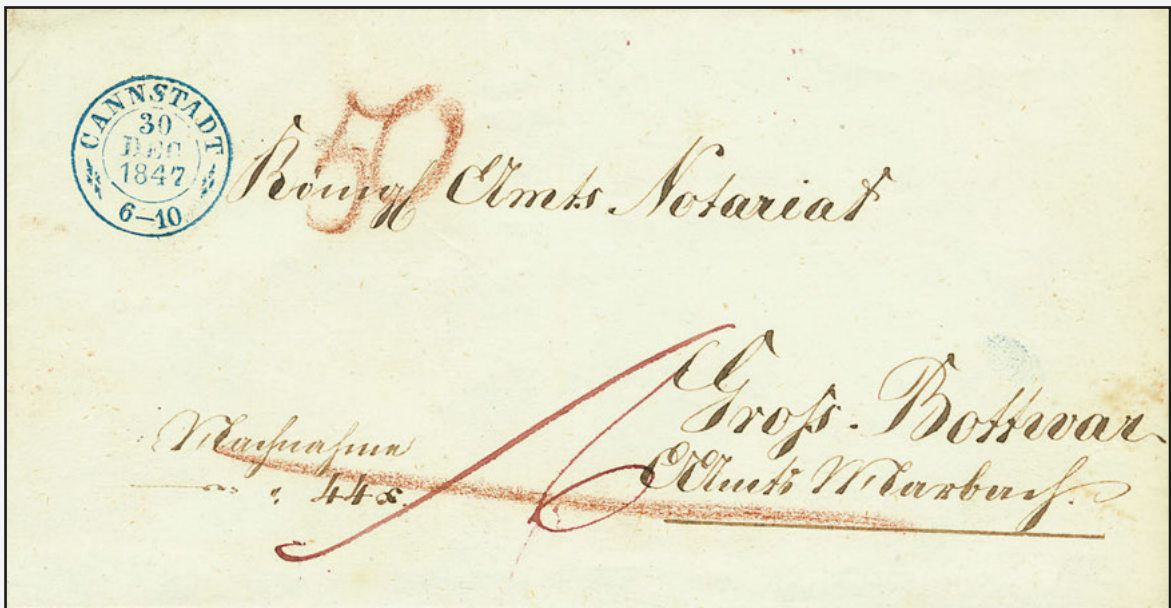 CANNSTADT
30
DEC
1847
6–10
50
Königl Amts Notariat
Gross-Bottwar
OAmts Marbach.
Nachnahme
—— " 44 x.